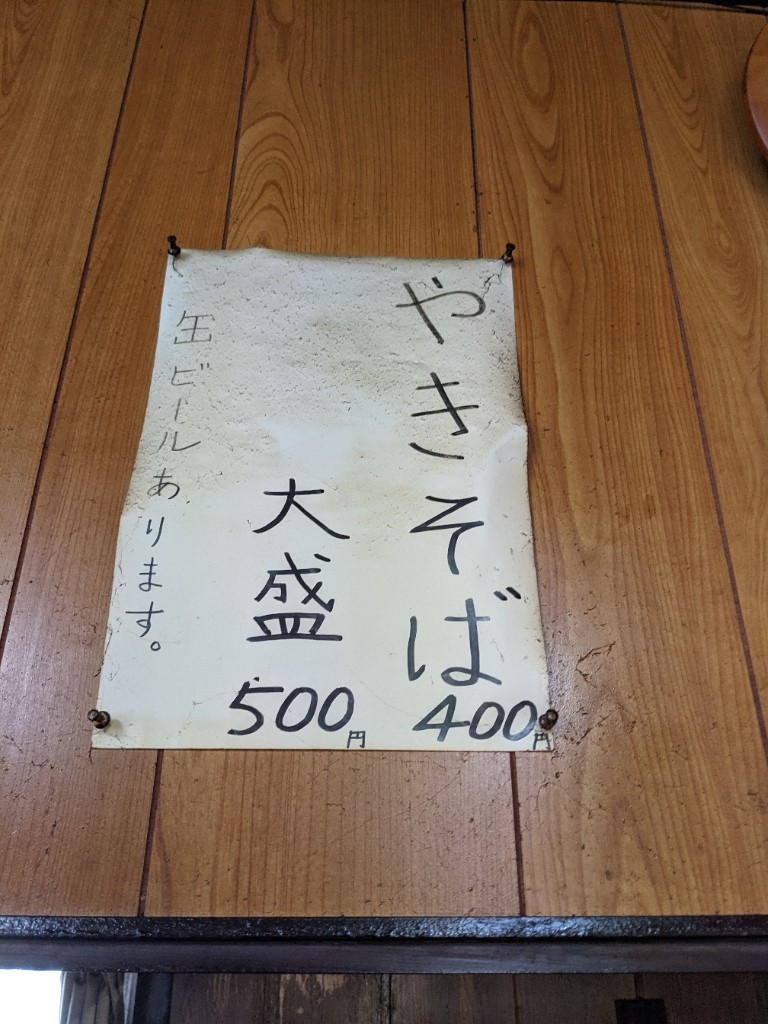 やきそば400円
大盛500円
缶ビールあります。